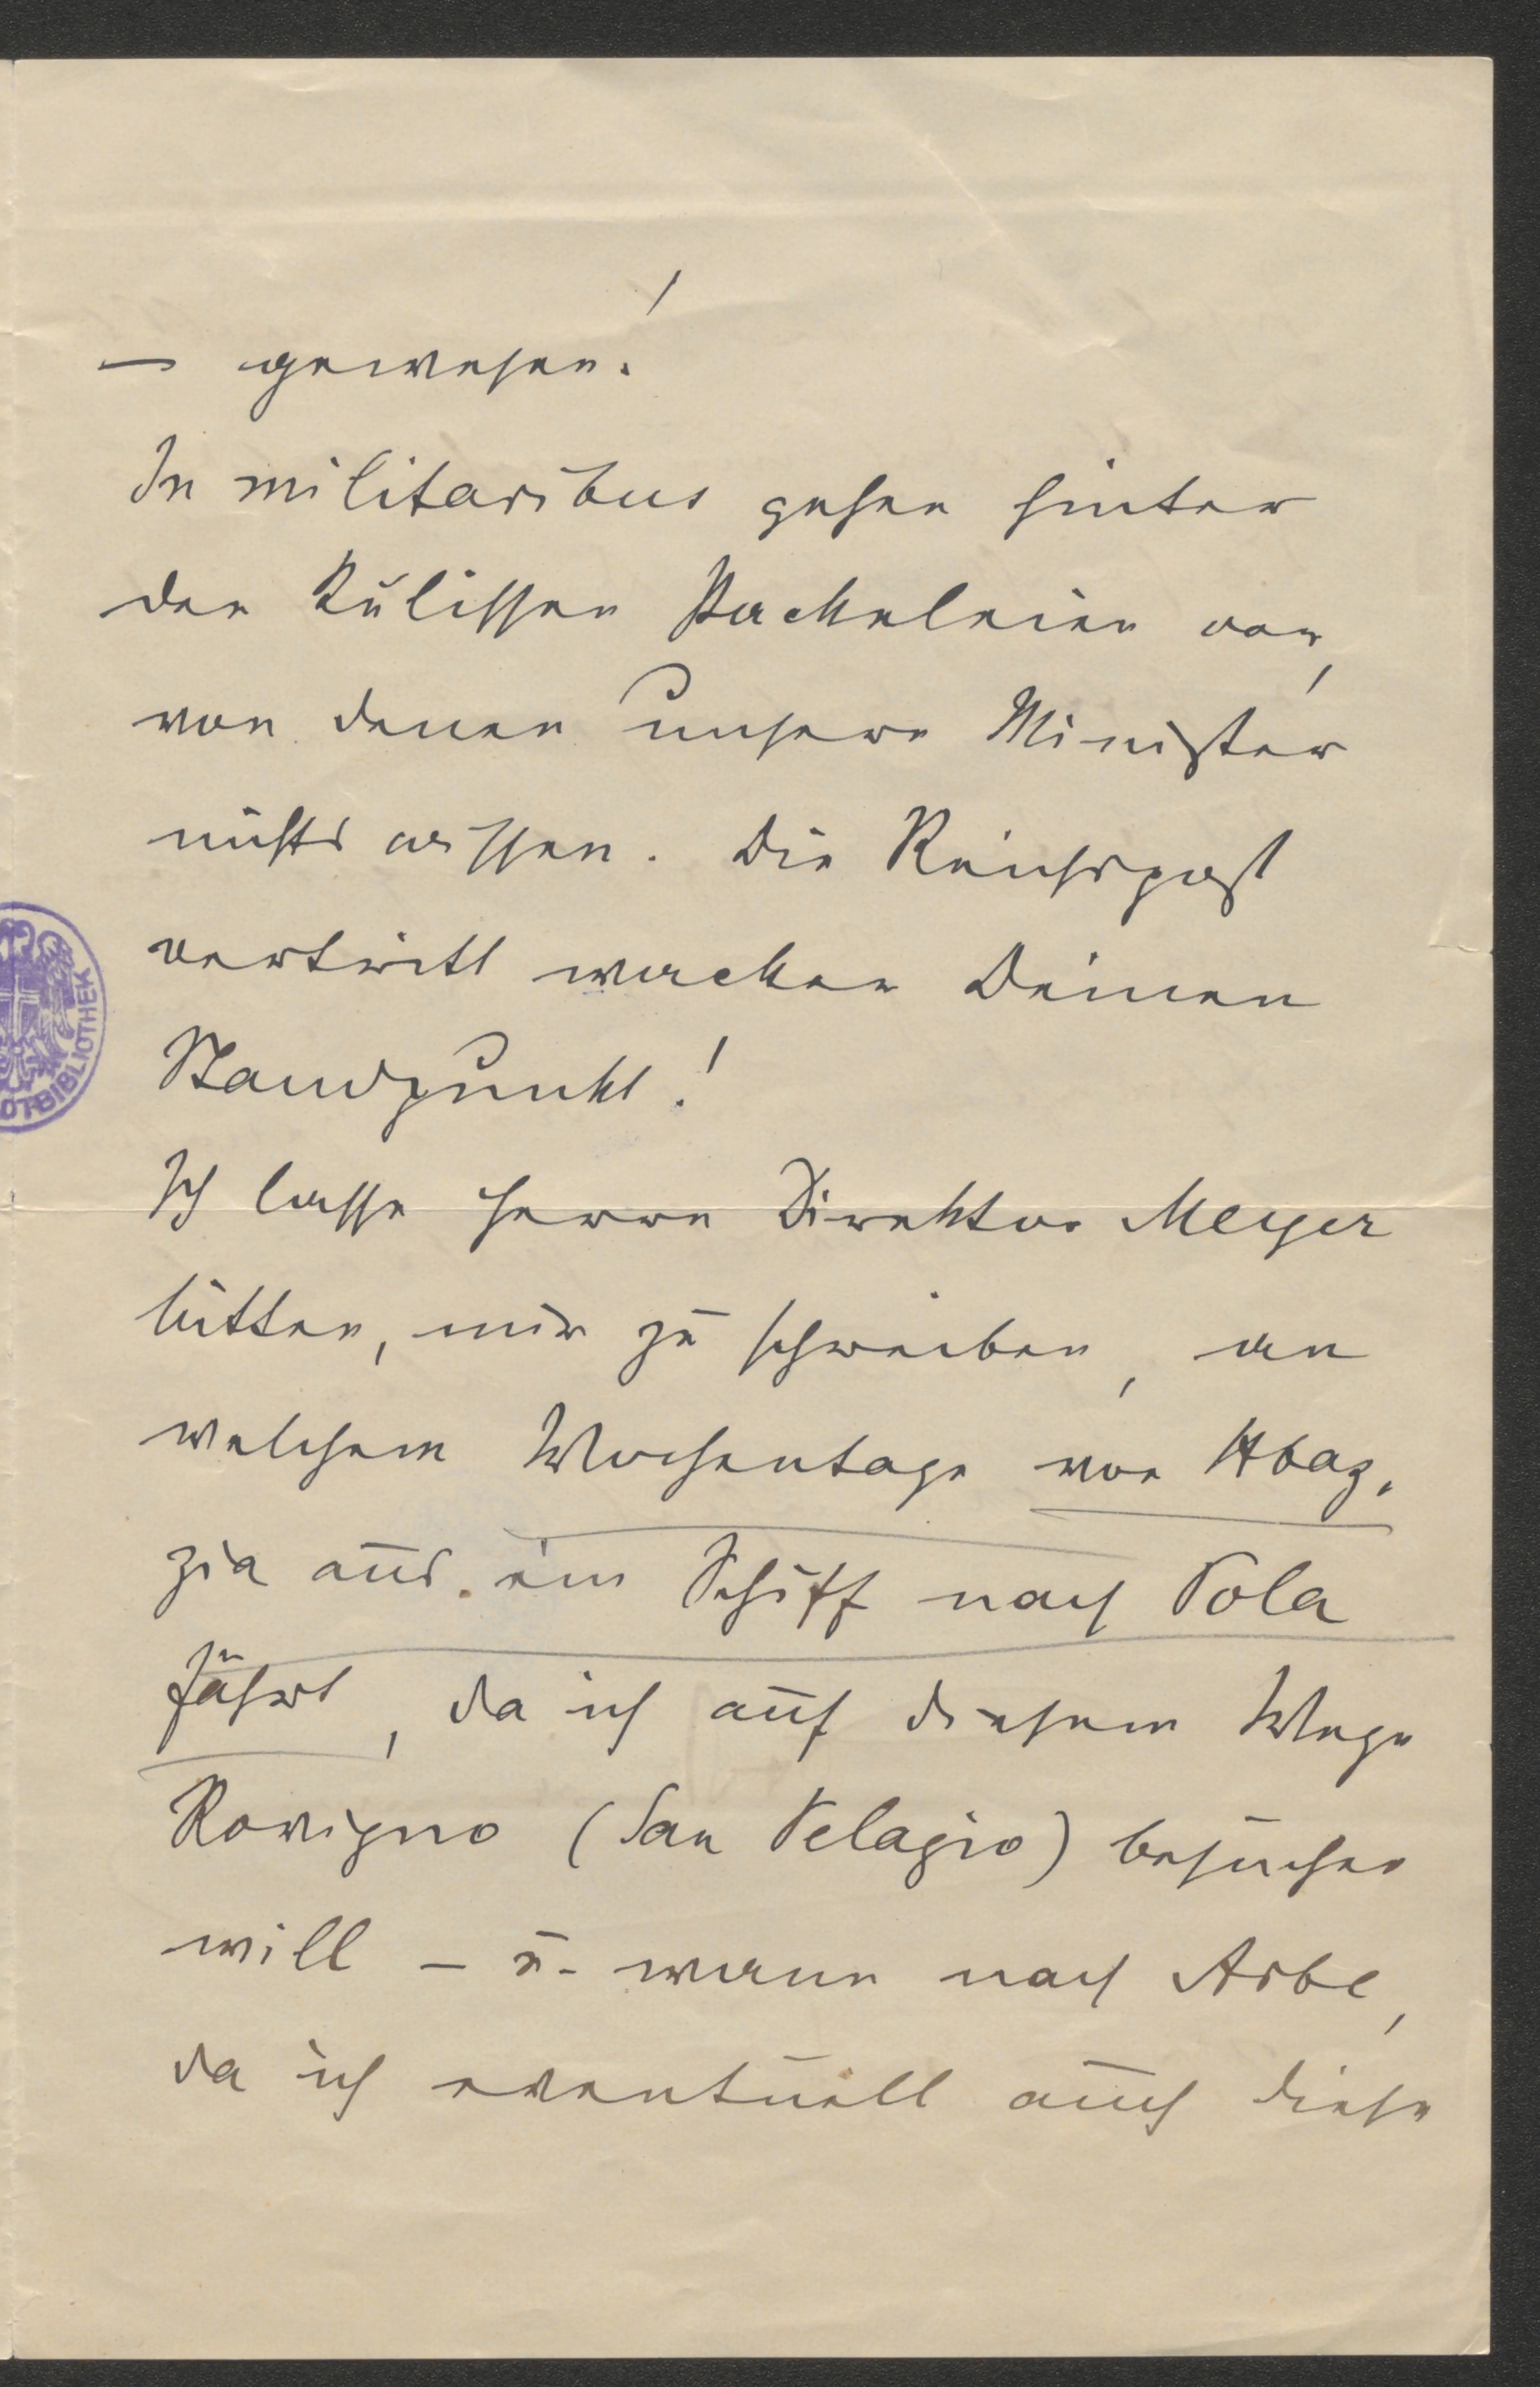 — gewesen!
In militaribus gehen hinter
den Kulissen Packeleien vor,
von denen unsere Minister
nichts wissen. Die Reichspost
vertritt wacker Deinen
Standpunkt!
Ich lasse Herrn Direktor Meyer
bitten, mir zu schreiben, an
welchem Wochentage von Abaz,
zia aus ein Schiff nach Pola
fährt, da ich auf diesem Wege
Rovigno (San Pelagio) besuchen
will – u. wann nach Arbe,
da ich eventuell auch diese
OTBIBLIOTHEK